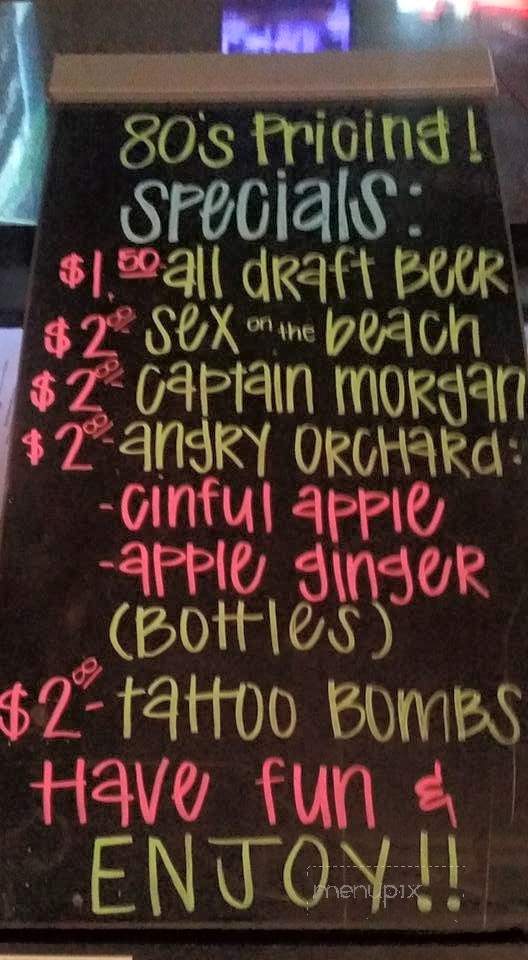 80's Pricing!
Specials:
$1.50 all draft Beer
$2.00 Sex on the beach
$2.00 captain morgan
$2.00- angry orchard:
-cinful apple
-apple ginger
(Bottles)
$2.00- tattoo Bombs
Have fun &
ENJOY!!
menupix